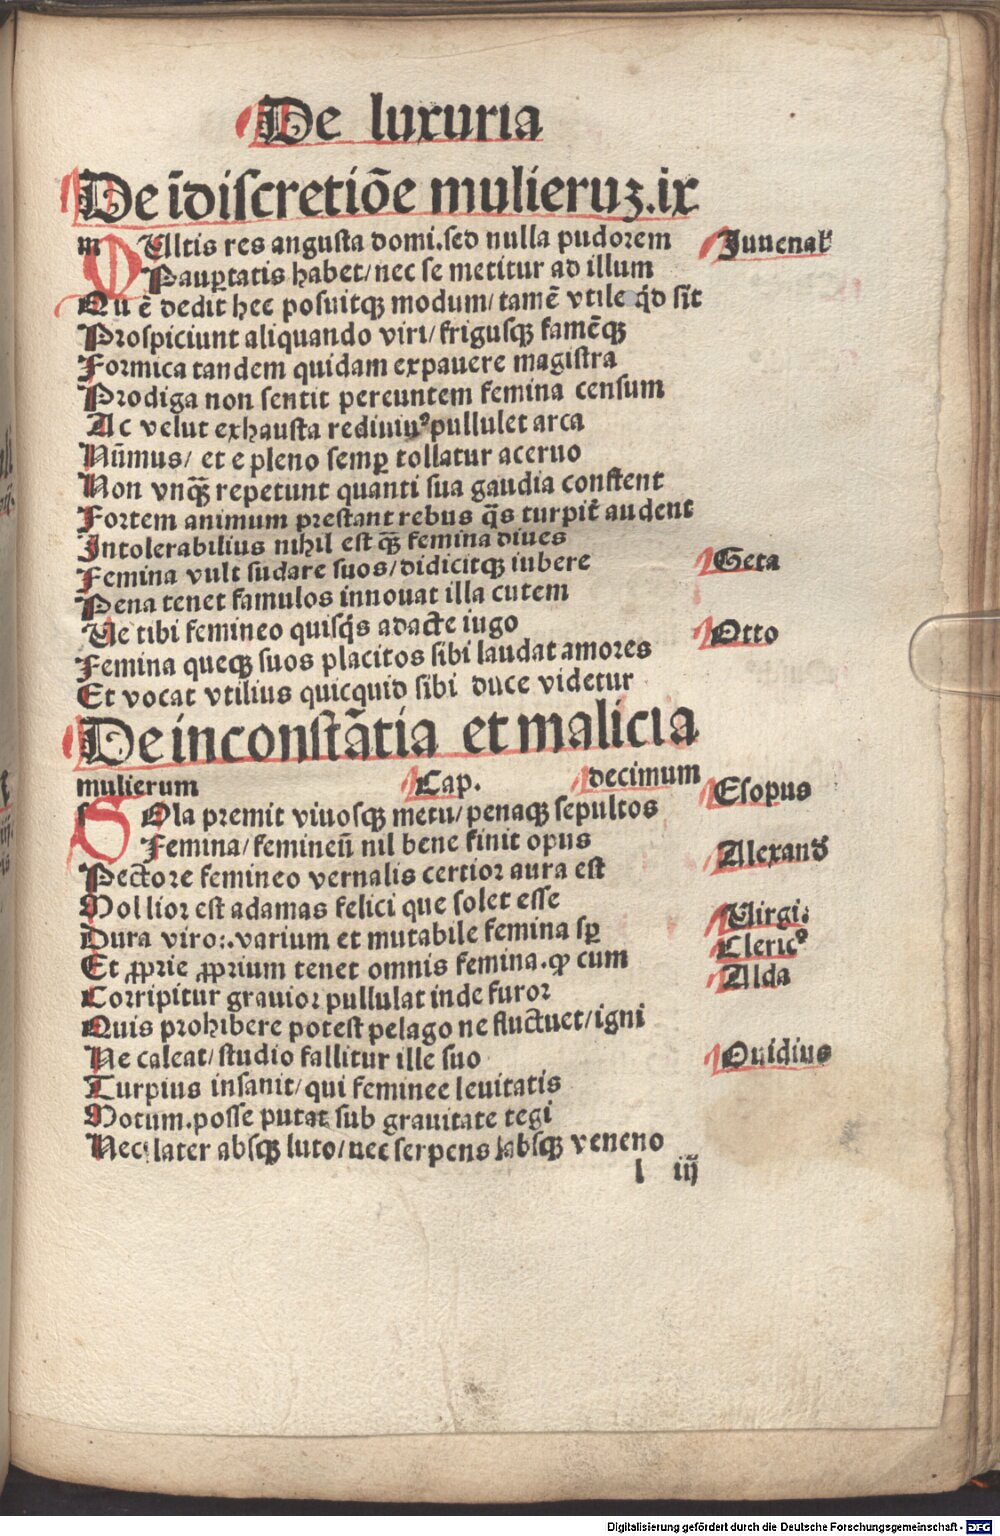 De luxuria
De īdiscretiōe mulieruꝫ.ix
mUltis res angusta domi.sed nulla pudorem Juuenal̕
Paup̲tatis habet/nec se metitur ad illum
Qu ē dedit hec posuitqꝫ modum/tamē vtile qd̓ sit
Prospiciunt aliquando viri/frigusqꝫ famēqꝫ
Formica tandem quidam expauere magistra
Prodiga non sentit pereuntem femina censum
Ac velut exhausta rediuiuꝰ pullulet arca
Nūmus/et e pleno semꝑ tollatur aceruo
Non vnqꝫ̄ repetunt quanti sua gaudia constent
Fortem animum prestant rebus q̄s turpit̕ audent
Intolerabilius nihil est qꝫ̄ femina diues
Femina vult sudare suos/didicitqꝫ iubere Geta
Pena tenet famulos innouat illa cutem
Ue tibi femineo quisqs̓ adacte iugo Otto
Femina queqꝫ suos placitos sibi laudat amores
Et vocat vtilius quicquid sibi duce videtur
De inconstātia et malicia
mulierum Cap. decimum
sOla premit viuosqꝫ metu/penaqꝫ sepultos Esopus
Femina/femineū nil bene finit opus
Pectore femineo vernalis certior aura est Alexand̕
Mollior est adamas felici que solet esse
Dura viro:.varium et mutabile femina sꝑ Uirgi:
Et ꝓprie ꝓprium tenet omnis femina.ꝙ cum Clericꝰ
Corripitur grauior pullulat inde furor Alda
Quis prohibere potest pelago ne fluctuet/igni
Ne caleat/studio fallitur ille suo Ouidius
Turpius insanit/qui feminee leuitatis
Motum.posse putat sub grauitate tegi
Nec later absqꝫ luto/nec serpens absqꝫ veneno
l iij
Digitalisierung gefördert durch die Deutsche Forschungsgemeinschaft - DFG